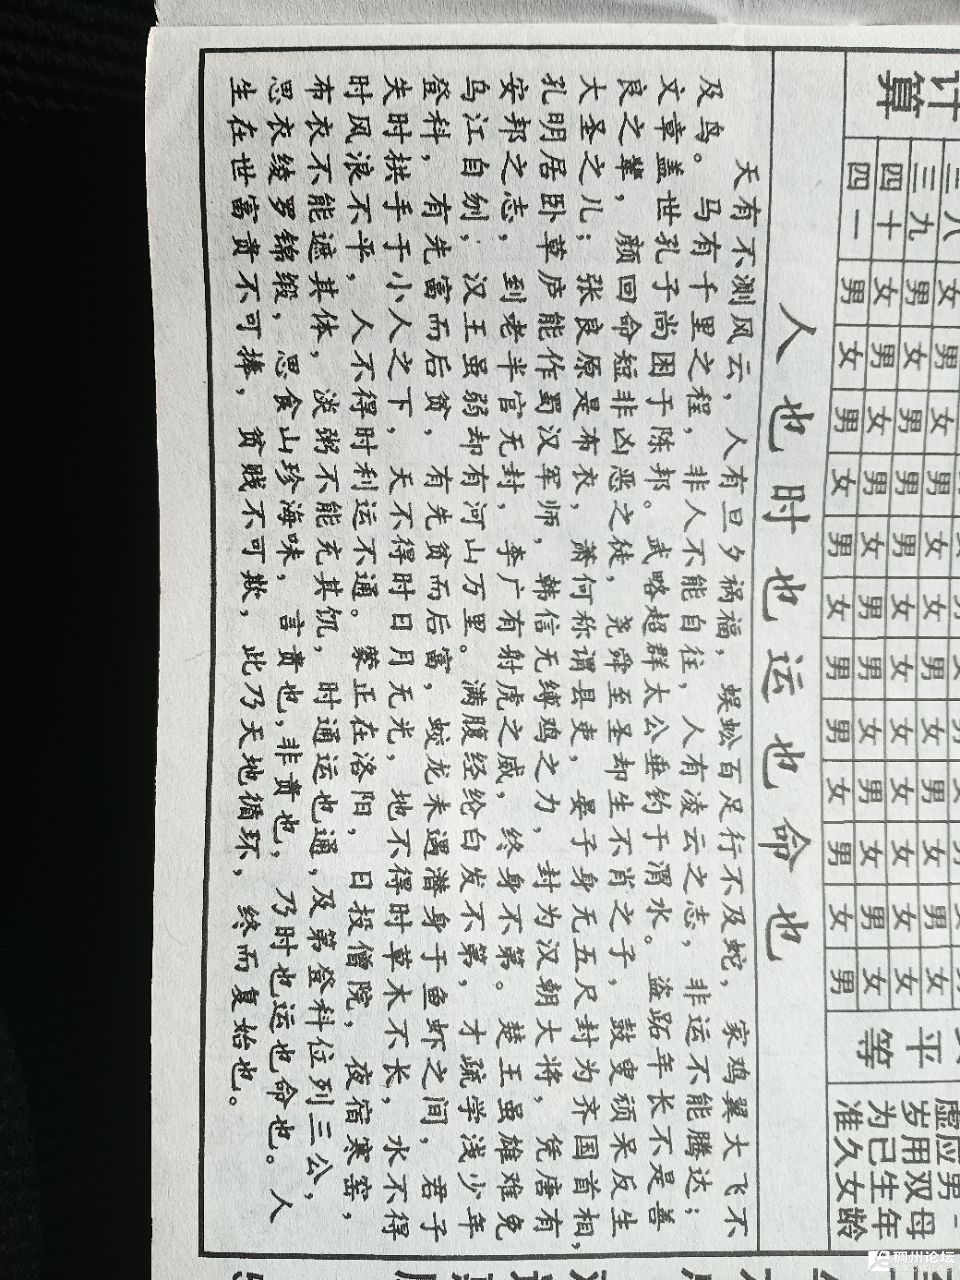 计算
平等
虚岁为准
应用已久
男双生女
母年龄
四十 女 男 女 男 女 男 男 女 男 女 男 女
四一 男 女 男 女 男 女 男 男 女 男 女 男
人也时也运也命也
天有不测风云，人有旦夕祸福，蜈蚣百足行不及蛇，家鸡翼大飞不
及鸟。马有千里之程，非人不能自往，人有凌云之志，非运不能腾达；
文章盖世孔子尚困于陈邦。武略超群太公垂钓于渭水。盗跖年长不是善
良之辈，颜回命短非凶恶之徒，尧舜至圣却生不肖之子，鼓叟顽呆反生
大圣之儿；张良原是布衣，萧何称谓县吏，晏子身无五尺封为齐国首相，
孔明居卧草庐能作蜀汉军师，韩信无缚鸡之力，封为汉朝大将，凭唐有
安邦之志，到老半官无封，李广有射虎之威，终身不第。楚王虽雄难免
乌江自刎，汉王虽弱却有河山万里。满腹经纶白发不第，才疏学浅少年
登科，有先富而后贫，有先贫而后富，蛟龙未遇潜身于鱼虾之间，君子
失时拱手于小人之下，天不得时日月无光，地不得时草木不长，水不得
时风浪不平，人不得时利运不通。蒙正在洛阳，日投僧院，夜宿寒窑，
布衣不能遮其体，淡粥不能充其饥，时通运也通，及第登科位列三公，
思衣绫罗锦缎，思食山珍海味，言贵也，非贵也，乃时也运也命也。人
生在世富贵不可捧，贫贱不可欺，此乃天地循环，终而复始也。
稠州论坛